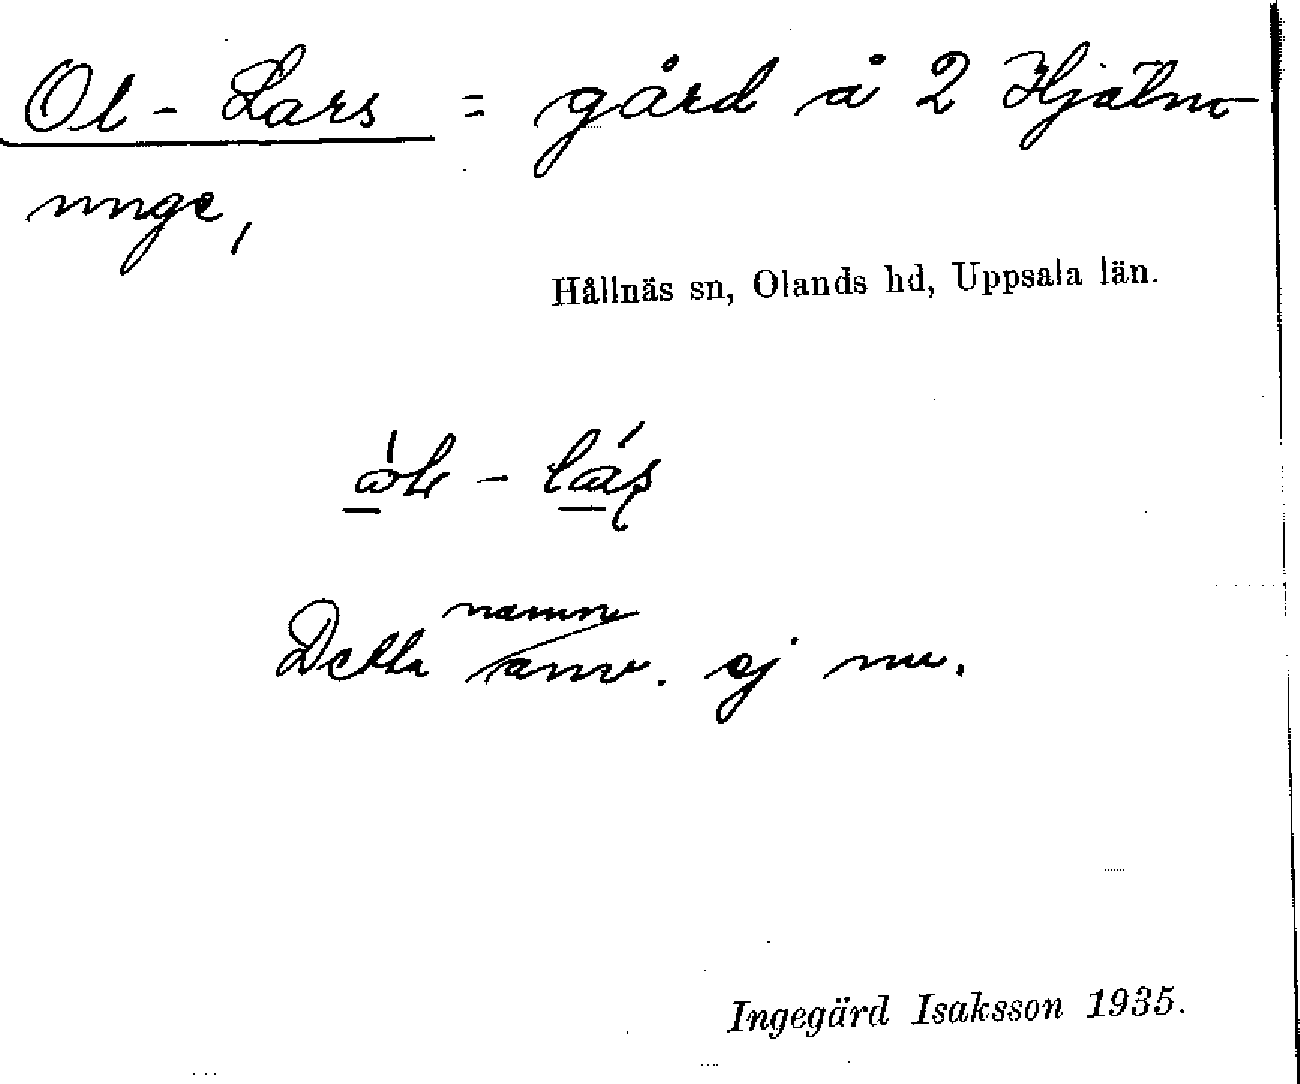 Ol - Lars = gård å 2 Hjälm-
unge,
Hållnäs sn, Olands hd, Uppsala län.
Detta namn
anv. ej nu.
Ingegärd Isaksson 1935.